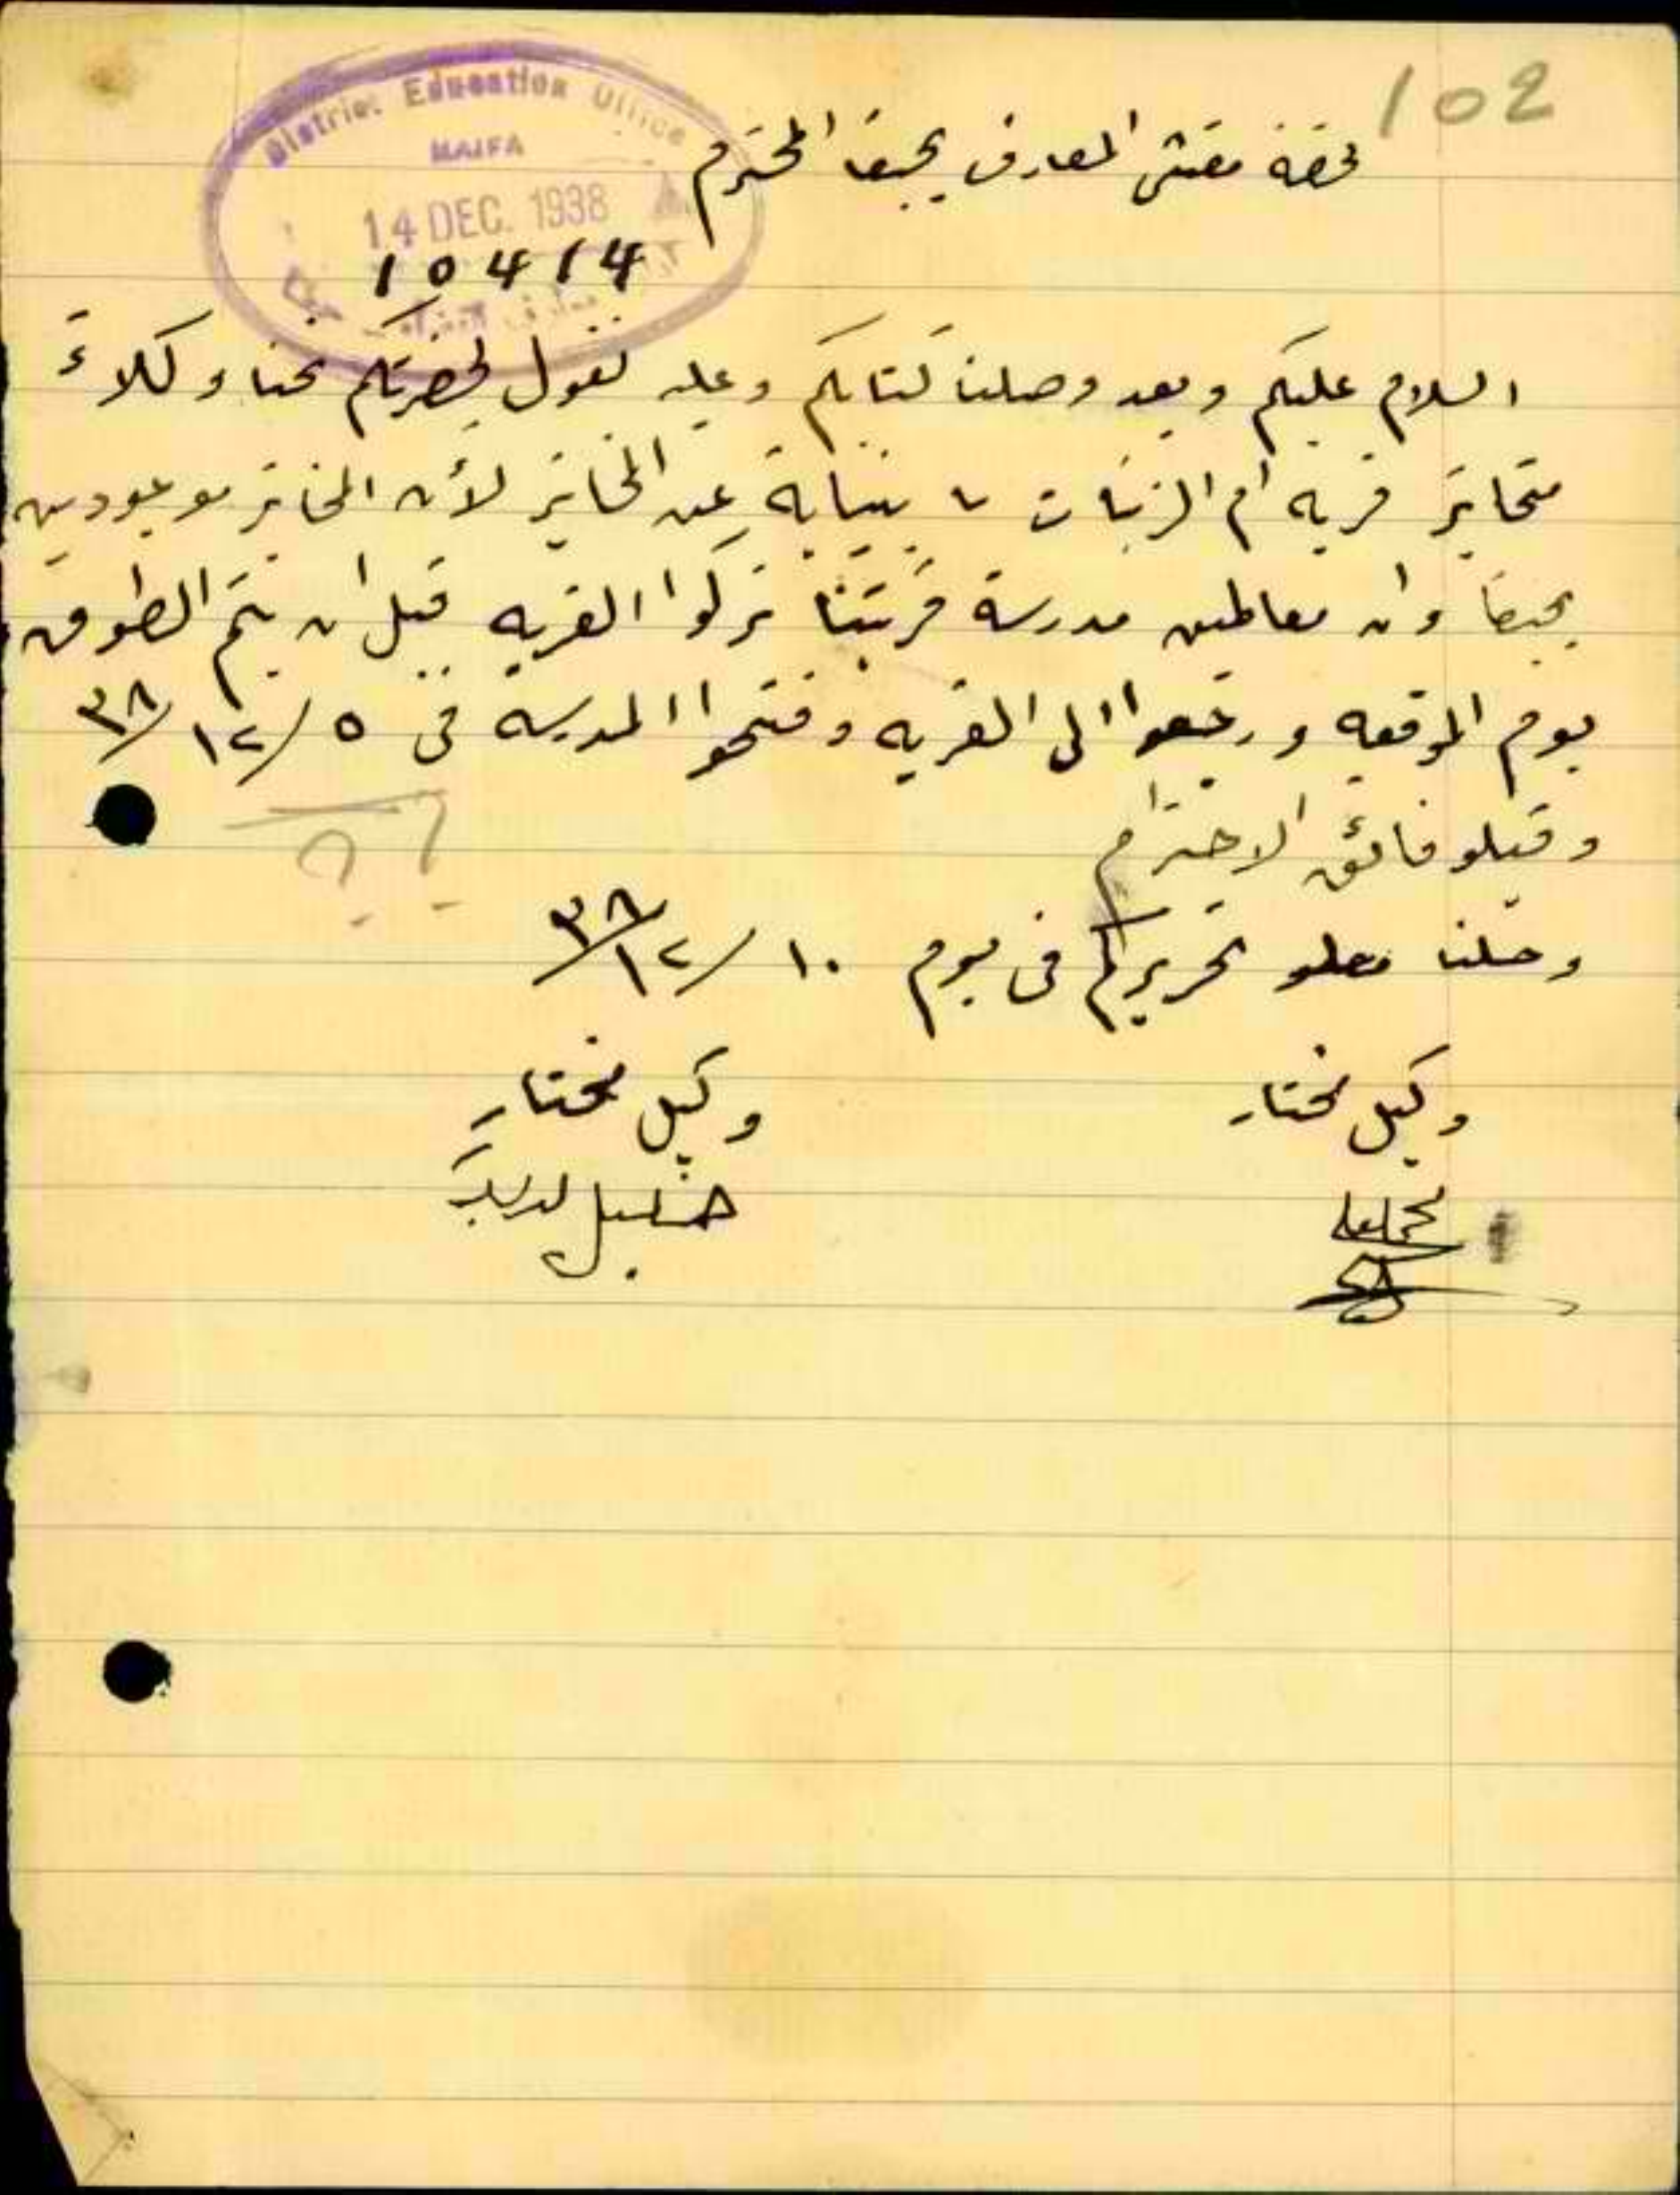 102
District Education Office
HAIFA
14 DEC. 1938
10414
حضرة مفتش المعارف بحيفا المحترم
السلام عليكم وبعد وصلنا كتابكم وعليه نقول لحضرتكم نحنا وكلاء
مخاتير قرية ام الزينات بنيابة عن المخاتير لأن المخاتير موجودين
بحيفا وان معلمين مدرسة قريتنا تركوا القريه قبل ان يتم الطوق
يوم الموقعه ورجعوا الى القريه وفتحوا المدرسه في ٥/١٢/٣٨
وقبلو فائق الاحترام
وصلنا تحريركم في يوم ١٠/١٢/٣٨
وكيل مختار
وكيل مختار
خليل